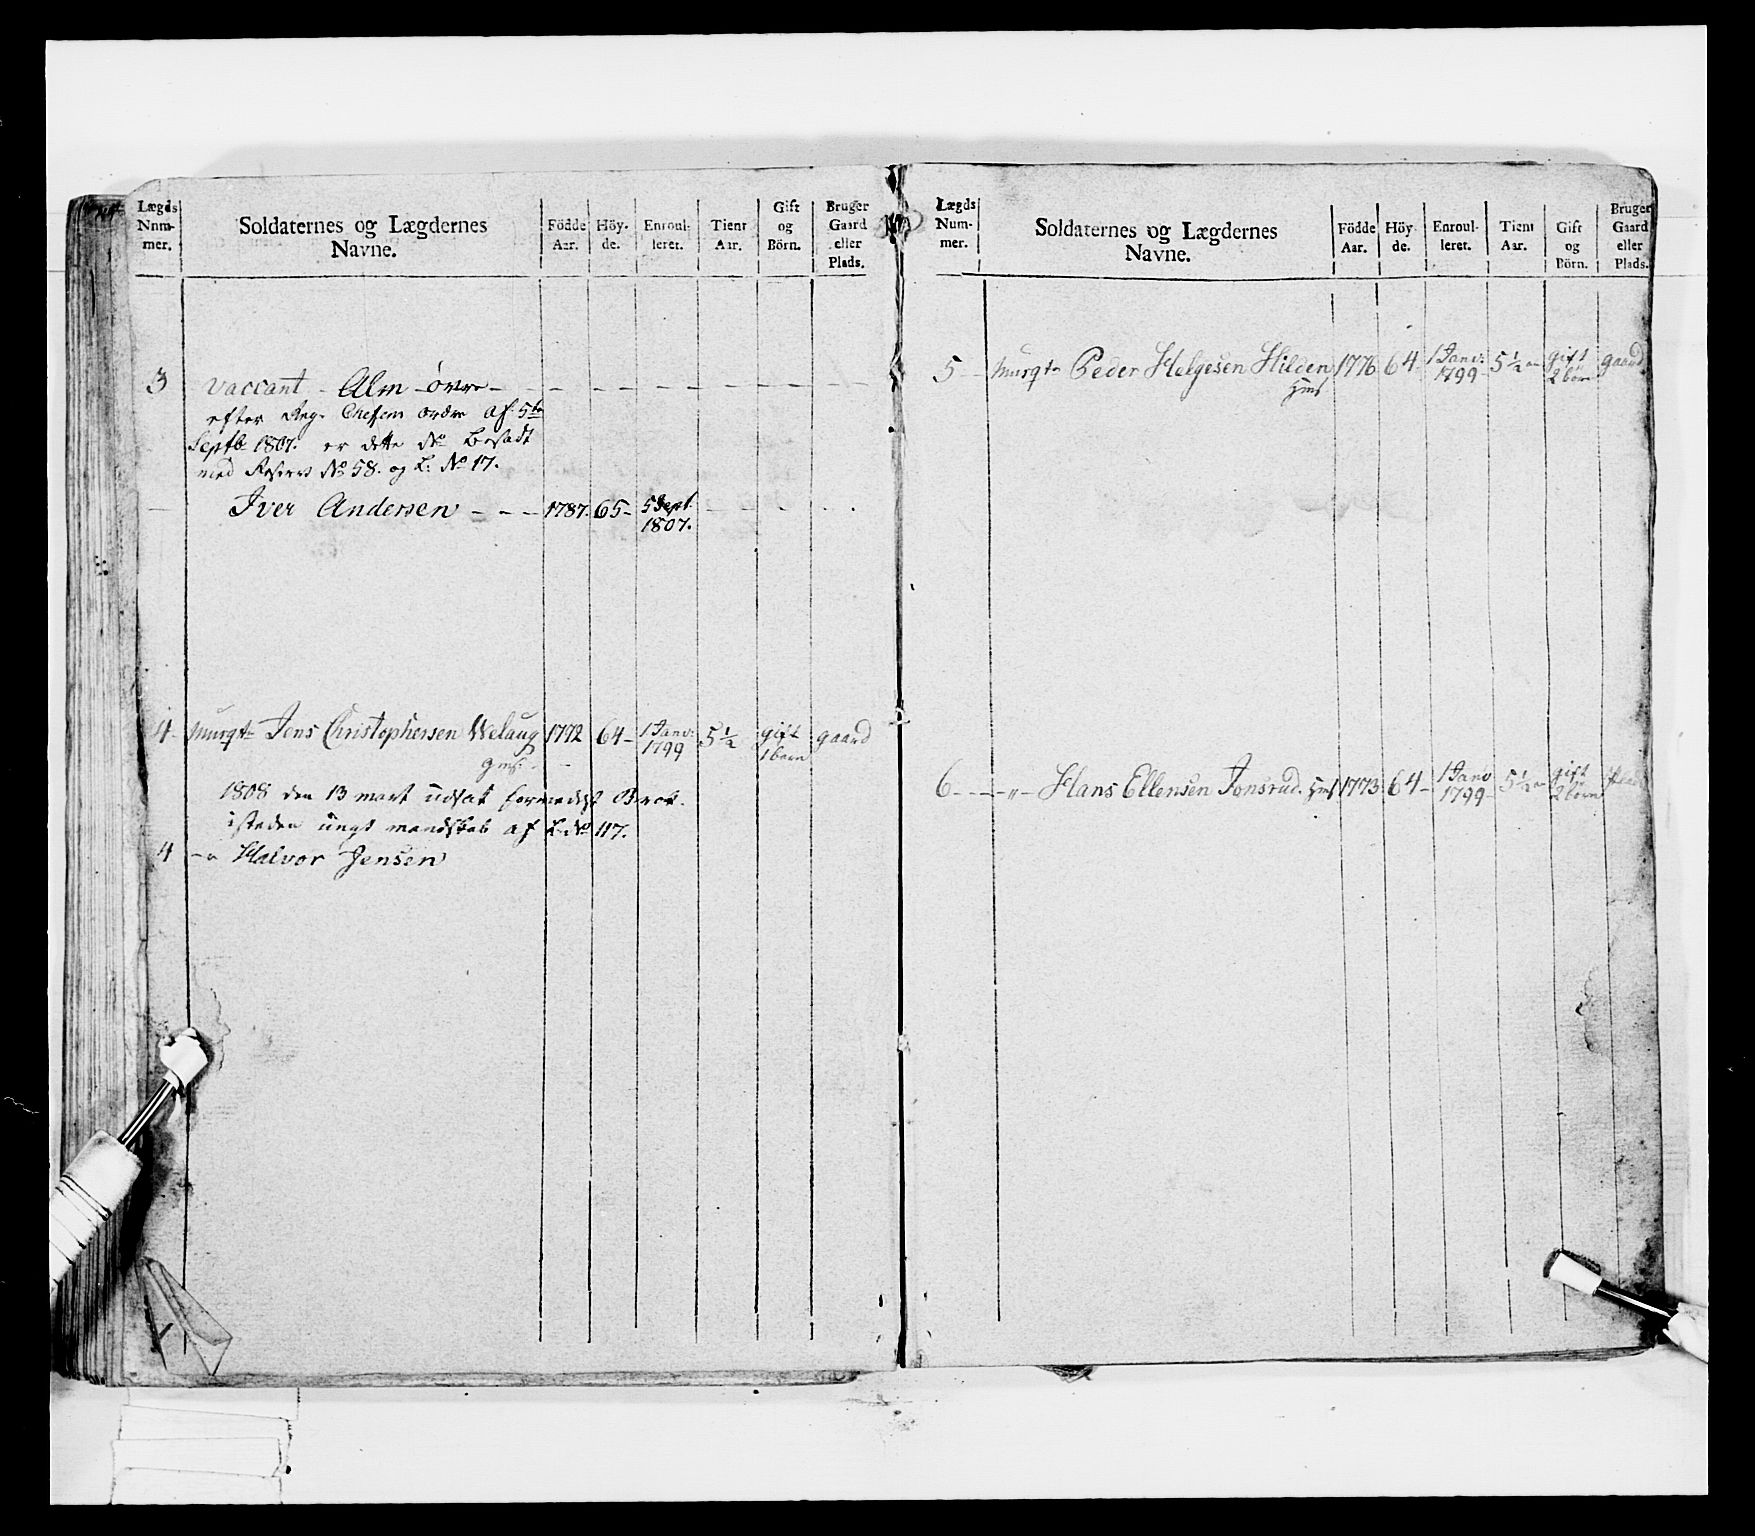 Lægds Num- mer. | Soldaternes og Lægdernes Navne. | Födde Aar. | Höy- de. | Enroul- leret. | Tient Aar. | Gift og Börn. | Bruger Gaard eller Plads.
3 vaccant - Alm øvre
efter Reg. Chefens ordre af 5te
Septb 1807. er dette No besadt
med Reserv No 58. og L: No 17.
Iver Andersen - - - 1787. 65 - 5 Sept 1807.
4 - Murqt Jens Christophersen Welaug 1772 64 - 1 Janv: 1799 5 1/2 gift 1 barn gaard
1808 den 13 mart udsat formedelst Brok.
isteden ungt mandskab af L: No 117.
4 Halvor Jensen
Lægds Num- mer. | Soldaternes og Lægdernes Navne. | Födde Aar. | Höy- de. | Enroul- leret. | Tient Aar. | Gift og Börn. | Bruger Gaard eller Plads.
5 - Murqt Peder Helgesen Hilden 1776 64 - 1 Janv: 1799 5 1/2 gift 2 børn gaard
6 - - - „ - Hans Ellensen Jonsrud. 1773 64 - 1 Janv 1799 - 5 1/2 gift 2 børn